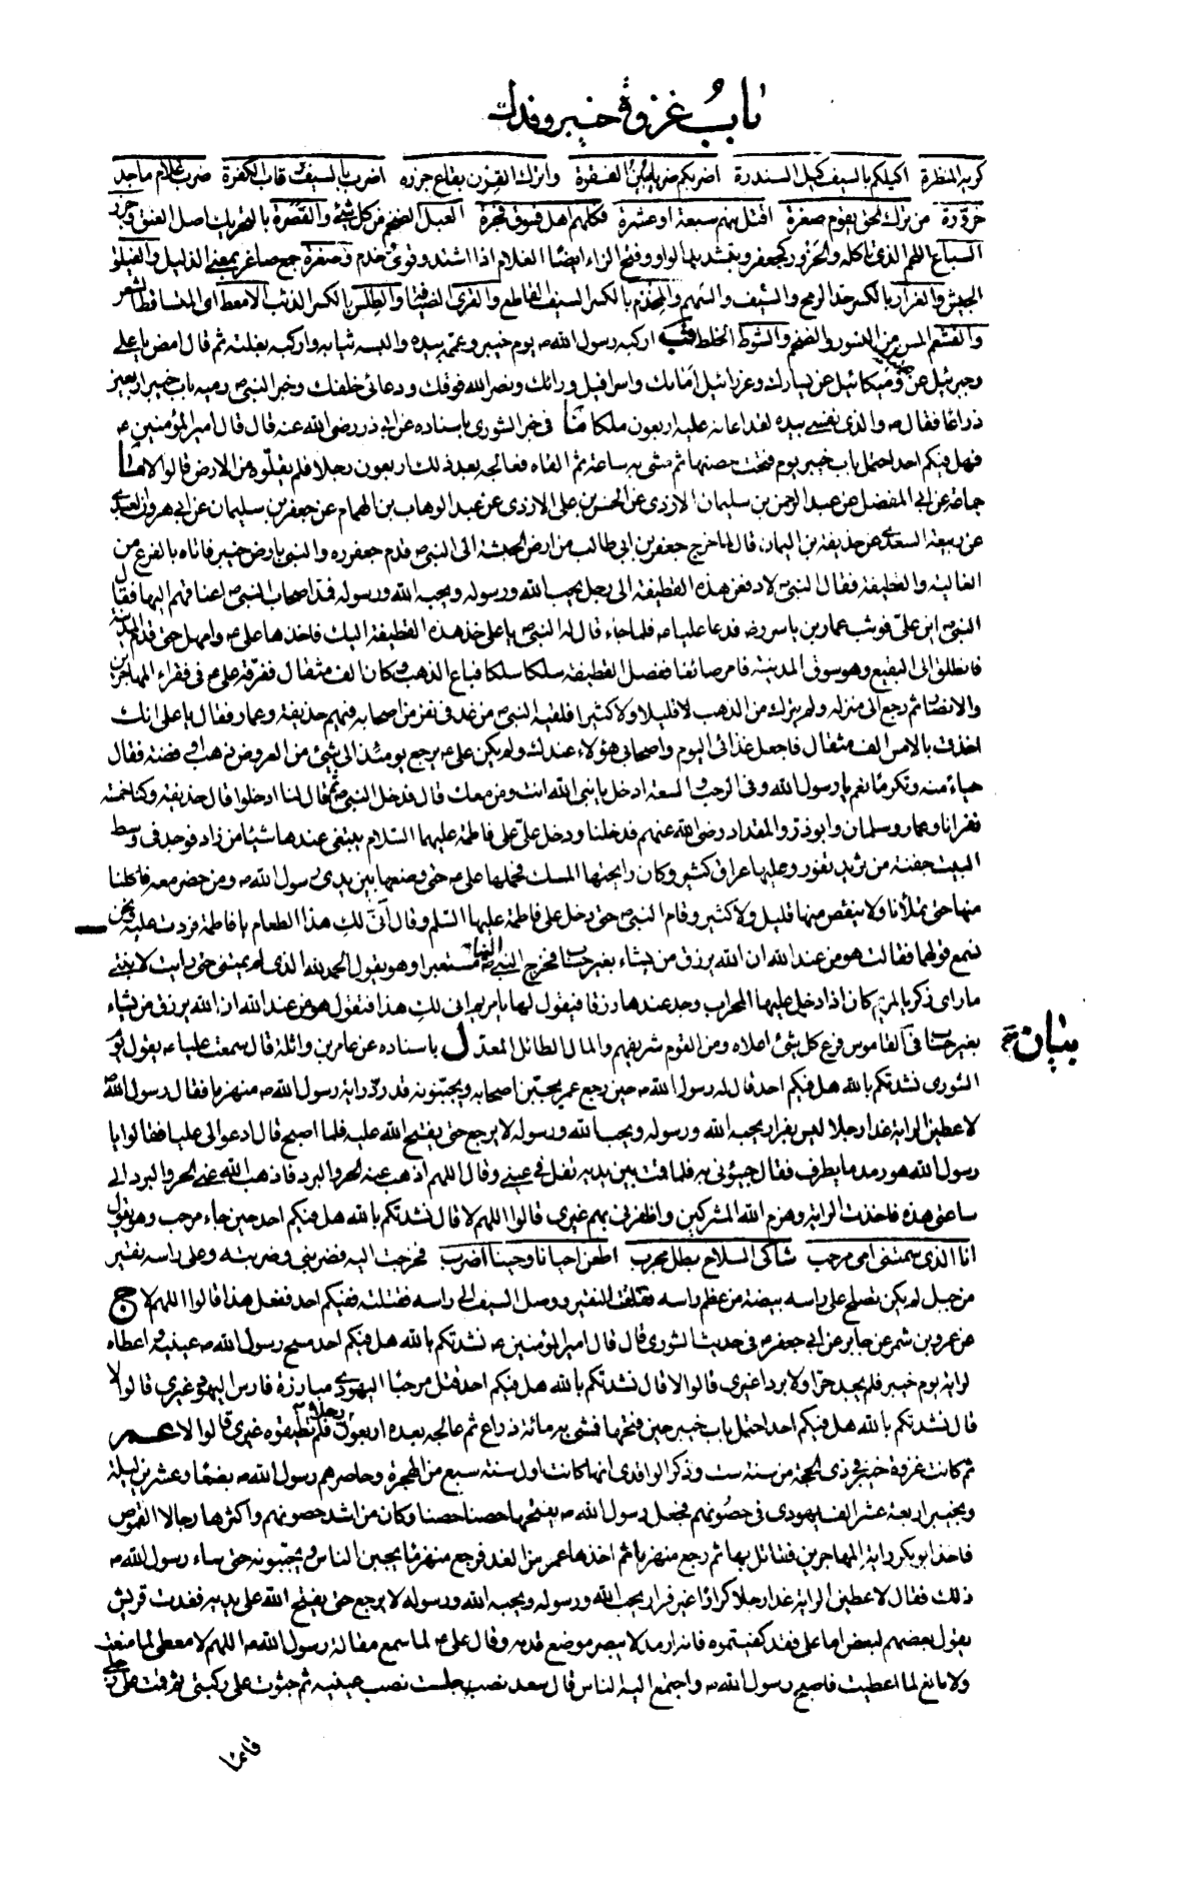 باب غزوة خيبر وفدك
كريه المنظرة اكيلكم بالسيف كيل السندرة اضربكم ضربا يبين الفقرة واترك القرن بقاع جزره اضرب بالسيف رقاب الكفرة ضرب غلام ماجد
حزورة من يترك الحق يقوم صغرة اقتل منهم سبعة او عشرة فكلهم اهل فسوق فجرة العبل الضخم من كل شئ والقصرة بالتحريك اصل العنق وجزر
السباع اللحم الذى تاكله والحزور كجعفر وبتشديد الواو وفتح الزاء ايضا الغلام اذا اشتد وقوى وخدم وصغرة جمع صاغر بمعنى الذليل والفيلق
الجيش والغرار بالكسر حد الرمح والسيف والسهم والمخذم بالكسر السيف القاطع والقرى الضيافة والطلس بالكسر الذئب الامعط اى المتساقط الشعر
والقشعم المسن من النسور والضخم والسوط الخلط قب اركبه رسول الله ص يوم خيبر وعممه بيده والبسه ثيابه واركبه بغلته ثم قال امض يا على
وجبرئيل عن يمينك وميكائيل عن يسارك وعزرائيل امامك واسرافيل ورائك ونصر الله فوقك ودعائى خلفك وخبر النبى ص رميه باب خيبر اربعين
ذراعا فقال ص والذى نفسى بيده لقد اعانه عليه اربعون ملكا ما فى خبر الشورى باسناده عن ابى ذر رضى الله عنه قال قال امير المؤمنين ع
فهل فيكم احد احتمل باب خيبر يوم فتحت حصنها ثم مشى به ساعة ثم القاه فعالجه بعد ذلك اربعون رجلا فلم يقلوه من الارض قالوا لا ما
جماعة عن ابى المفضل عن عبد الرحمن بن سليمان الازدى عن الحسن بن على الازدى عن عبد الوهاب بن الهمام عن جعفر بن سليمان عن ابى هرون العبدى
عن ربيعة السعدى عن حذيفة بن اليمان قال لما خرج جعفر بن ابى طالب من ارض الحبشة الى النبى ص قدم جعفر ره والنبى بارض خيبر فاتاه بالفرع من
الغالية والقطيفة فقال النبى ص لادفعن هذه القطيفة الى رجل يحب الله ورسوله ويحبه الله ورسوله فمد اصحاب النبى ص اعناقهم اليها فقال
النبى ص اين على فوثب عمار بن ياسر رض فدعا عليا ع فلما جاء قال له النبى ص يا على خذ هذه القطيفة اليك فاخذها على ع وامهل حتى قدم المدينة
فانطلق الى البقيع وهو سوق المدينة فامر صائغا ففصل القطيفة سلكا سلكا فباع الذهب وكان الف مثقال ففرقه على ع فى فقراء المهاجرين
والانصار ثم رجع الى منزله ولم يترك من الذهب لا قليلا ولا كثيرا فلقيه النبى ص من غد فى نفر من اصحابه فيهم حذيفة وعمار فقال يا على انك
اخذت بالامس الف مثقال فاجعل غذائى اليوم واصحابى هؤلاء عندك ولم يكن على ع يرجع يومئذ الى شئ من العروض ذهب او فضة فقال
حياء منه وتكرما نعم يا رسول الله وفى الرحب والسعة ادخل يا نبى الله انت ومن معك قال فدخل النبى ص ثم قال لنا ادخلوا قال حذيفة وكنا خمسة
نفر انا وعمار وسلمان وابو ذر والمقداد رضى الله عنهم فدخلنا ودخل على على فاطمة عليهما السلام يبتغى عندها شيئا من زاد فوجد فى وسط
البيت جفنة من ثريد تفور وعليها عراق كثير وكان رايحتها المسك فحملها على ع حتى وضعها بين يدى رسول الله ص ومن حضر معه فاكلنا
منها حتى تملأنا ولا ينقص منها قليل ولا كثير وقام النبى ص حتى دخل على فاطمة عليها السلم وقال انى لك هذا الطعام يا فاطمة فردت عليه ونحن
نسمع قولها فقالت هو من عند الله ان الله يرزق من يشاء بغير حساب فخرج النبى ص الينا مستعبرا وهو يقول الحمد لله الذى لم يمتنى حتى رايت لابنتى
ما راى زكريا لمريم كان اذا دخل عليها المحراب وجد عندها رزقا فيقول لها يا مريم انى لك هذا فتقول هو من عند الله ان الله يرزق من يشاء
بغير حساب
بيان
فى القاموس فرع كل شئ اعلاه ومن القوم شريفهم والمال الطائل المعد ل باسناده عن عامر بن واثلة قال سمعت عليا ع يقول يوم
الشورى نشدتكم بالله هل فيكم احد قال له رسول الله ص حين رجع عمر يجبن اصحابه ويجبنونه قد رد راية رسول الله ص منهزما فقال رسول الله ص
لاعطين الراية غدا رجلا ليس بفرار يحبه الله ورسوله ويحب الله ورسوله لا يرجع حتى يفتح الله عليه فلما اصبح قال ادعوا لى عليا فقالوا يا
رسول الله هو رمد ما يطرف فقال جيئونى به فلما قمت بين يديه تفل فى عينى وقال اللهم اذهب عنه الحر والبرد فاذهب الله عنى الحر والبرد الى
ساعتى هذه فاخذت الراية وهزم الله المشركين واظفرنى بهم غيرى قالوا اللهم لا قال نشدتكم بالله هل فيكم احد حين جاء مرحب وهو يقول
انا الذى سمتنى امى مرحب شاكى السلاح بطل مجرب اطعن احيانا وحينا اضرب فخرجت اليه فضربنى وضربته وعلى راسه نقير
من جبل لم يكن تصلح على راسه بيضة من عظم راسه ففلقت النقير ووصل السيف الى راسه فقتلته ففيكم احد فعل هذا قالوا اللهم لا ج
عن عمرو بن شمر عن جابر عن ابى جعفر ع فى حديث الشورى قال قال امير المؤمنين ع نشدتكم بالله هل فيكم احد مسح رسول الله ص عينيه واعطاه
لراية يوم خيبر فلم يجد حرا ولا بردا غيرى قالوا لا قال نشدتكم بالله هل فيكم احد قتل مرحبا اليهودى مبارزة فارس اليهود غيرى قالوا لا
قال نشدتكم بالله هل فيكم احد احتمل باب خيبر حين فتحها فمشى به مائة ذراع ثم عالجه بعده اربعون رجلا فلم يطيقوه غيرى قالوا لا عم
ثم كانت غزوة خيبر فى ذى الحجة من سنة ست وذكر الواقدى انها كانت اول سنة سبع من الهجرة وحاصرهم رسول الله ص بضعا وعشرين ليلة
وبخيبر اربعة عشر الف يهودى فى حصونهم فجعل رسول الله ص يفتحها حصنا حصنا وكان من اشد حصونهم واكثرها رجالا القموص
فاخذ ابو بكر راية المهاجرين فقاتل بها ثم رجع منهزما ثم اخذها عمر من الغد فرجع منهزما يجبن الناس ويجبنونه حتى ساء رسول الله ص
ذلك فقال لاعطين الراية غدا رجلا كرارا غير فرار يحب الله ورسوله ويحبه الله ورسوله لا يرجع حتى يفتح الله على يديه فغدت قريش
يقول بعضهم لبعض اما على فقد كفيتموه فانه ارمد لا يبصر موضع قدمه وقال على ع لما سمع مقالة رسول الله ص اللهم لا معطى لما منعت
ولا مانع لما اعطيت فاصبح رسول الله ص واجتمع اليه الناس قال سعد جلست نصب عينيه ثم جثوت على ركبتى ثم قمت على رجلى
قائما